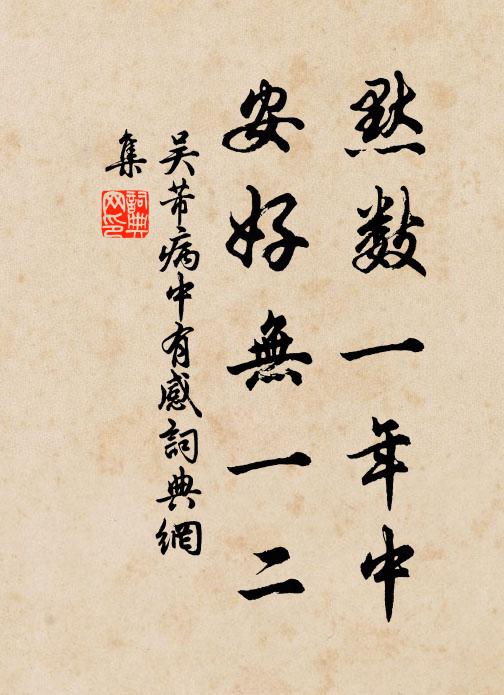 默数一年中
安好無一二
吴芾病中有感詞典網
集
詞典
网印